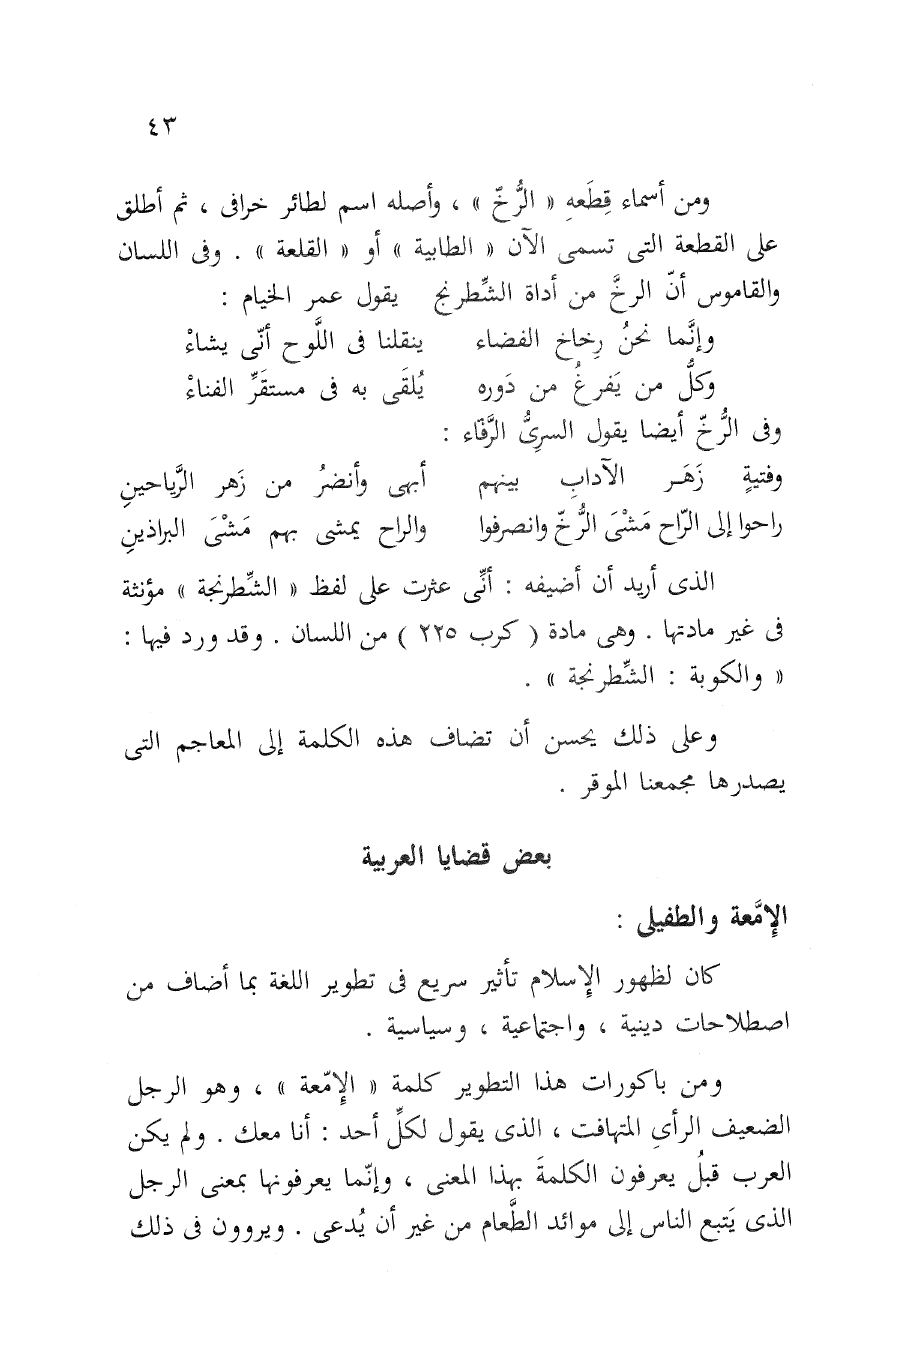 ٤٣
ومن أسماء قِطَعهِ « الرُّخّ » ، وأصله اسم لطائر خرافى ، ثم أطلق
على القطعة التى تسمى الآن « الطابية » أو « القلعة » . وفى اللسان
والقاموس أنّ الرخَّ من أداة الشِّطرنج يقول عمر الخيام :
وإنَّما نحنُ رِخاخ الفضاء ينقلنا فى اللَّوح أنّى يشاءْ
وكلُّ من يَفرغُ من دَوره يُلقَى به فى مستقَرِّ الفناءْ
وفى الرُّخّ أيضا يقول السرِىُّ الرَّفّاء :
وفتيةٍ زَهَـر الآدابِ بينهم أبهى وأنضرُ من زَهر الرَّياحينِ
راحوا إلى الرّاح مَشْىَ الرُّخّ وانصرفوا والراح يمشى بهم مَشْىَ البراذينِ
الذى أريد أن أضيفه : أنِّى عثرت على لفظ « الشِّطرنجة » مؤنثة
فى غير مادتها . وهى مادة ( كرب ٢٢٥ ) من اللسان . وقد ورد فيها :
« والكوبة : الشِّطرنجة » .
وعلى ذلك يحسن أن تضاف هذه الكلمة إلى المعاجم التى
يصدرها مجمعنا الموقر .
بعض قضايا العربية
الإمَّعة والطفيلى :
كان لظهور الإسلام تأثير سريع فى تطوير اللغة بما أضاف من
اصطلاحات دينية ، واجتماعية ، وسياسية .
ومن باكورات هذا التطوير كلمة « الإمّعة » ، وهو الرجل
الضعيف الرأىِ المتهافت ، الذى يقول لكلِّ أحد : أنا معك . ولم يكن
العرب قبلُ يعرفون الكلمةَ بهذا المعنى ، وإنّما يعرفونها بمعنى الرجل
الذى يَتبع الناس إلى موائد الطَّعام من غير أن يُدعى . ويروون فى ذلك